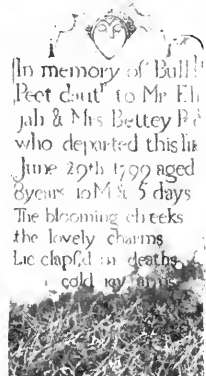 In memory of Bull
Peet daut^r to M^r Eli
jah & Mrs Bettey
who departed this life
June 29th 1799 aged
8 years 10 M & 5 days
The blooming cheeks
the lovely charms
Lie clasp'd in deaths
cold arms